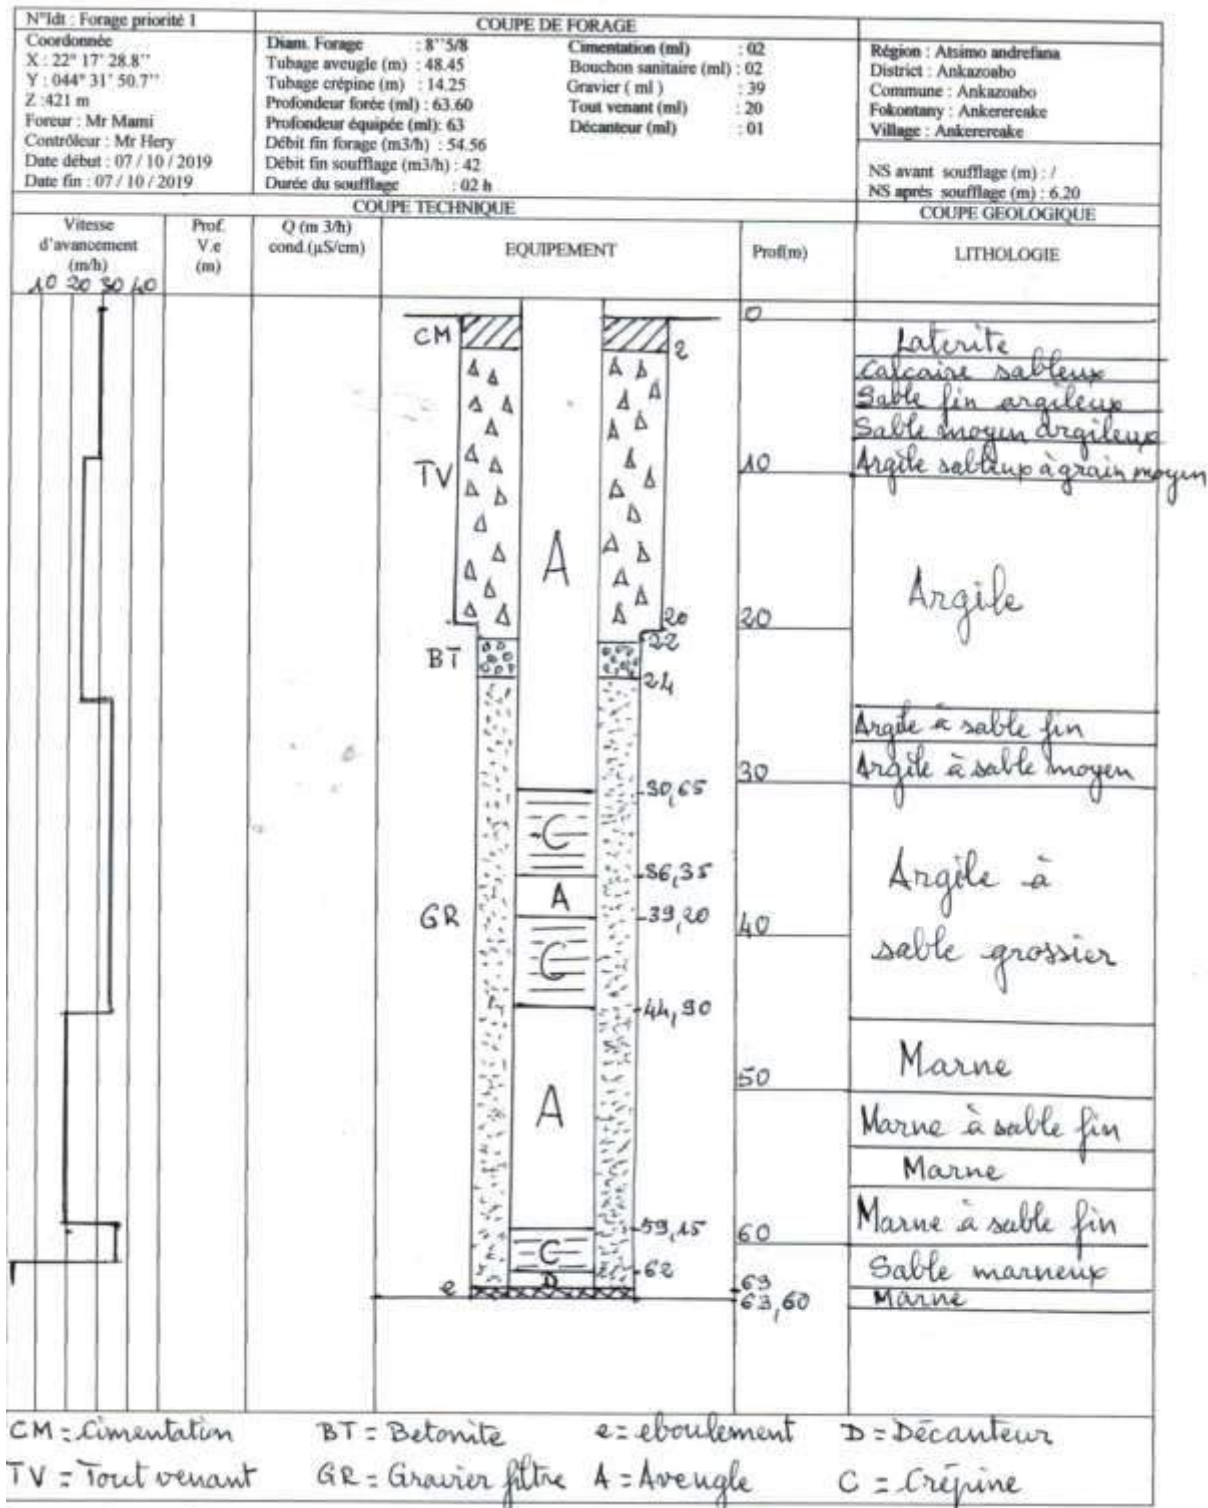 N°Idt : Forage priorité 1
Coordonnée
X : 22° 17' 28.8''
Y : 044° 31' 50.7''
Z :421 m
Foreur : Mr Mami
Contrôleur : Mr Hery
Date début : 07 / 10 / 2019
Date fin : 07 / 10 / 2019
COUPE DE FORAGE
Diam. Forage : 8''5/8
Tubage aveugle (m) : 48.45
Tubage crépine (m) : 14.25
Profondeur forée (ml) : 63.60
Profondeur équipée (ml): 63
Débit fin forage (m3/h) : 54.56
Débit fin soufflage (m3/h) : 42
Durée du soufflage : 02 h
Cimentation (ml) : 02
Bouchon sanitaire (ml) : 02
Gravier ( ml ) : 39
Tout venant (ml) : 20
Décanteur (ml) : 01
Région : Atsimo andrefana
District : Ankazoabo
Commune : Ankazoabo
Fokontany : Ankerereake
Village : Ankerereake
NS avant soufflage (m) : /
NS après soufflage (m) : 6.20
COUPE TECHNIQUE
COUPE GEOLOGIQUE
Vitesse
d'avancement
(m/h)
10 20 30 40
Prof.
V.e
(m)
Q (m 3/h)
cond.(µS/cm)
EQUIPEMENT
Prof(m)
LITHOLOGIE
CM
2
TV
A
20
BT
22
24
30,65
C
36,35
A
GR
39,20
C
44,90
A
59,15
C
62
D
e
0
10
20
30
40
50
60
63
63,60
Laterite
Calcaire sableux
Sable fin argileux
Sable moyen argileux
Argile sableux à grain moyen
Argile
Argile à sable fin
Argile à sable moyen
Argile à
sable grossier
Marne
Marne à sable fin
Marne
Marne à sable fin
Sable marneux
Marne
CM = Cimentation BT = Betonite e = eboulement D = Décanteur
TV = Tout venant GR = Gravier filtre A = Aveugle C = Crépine